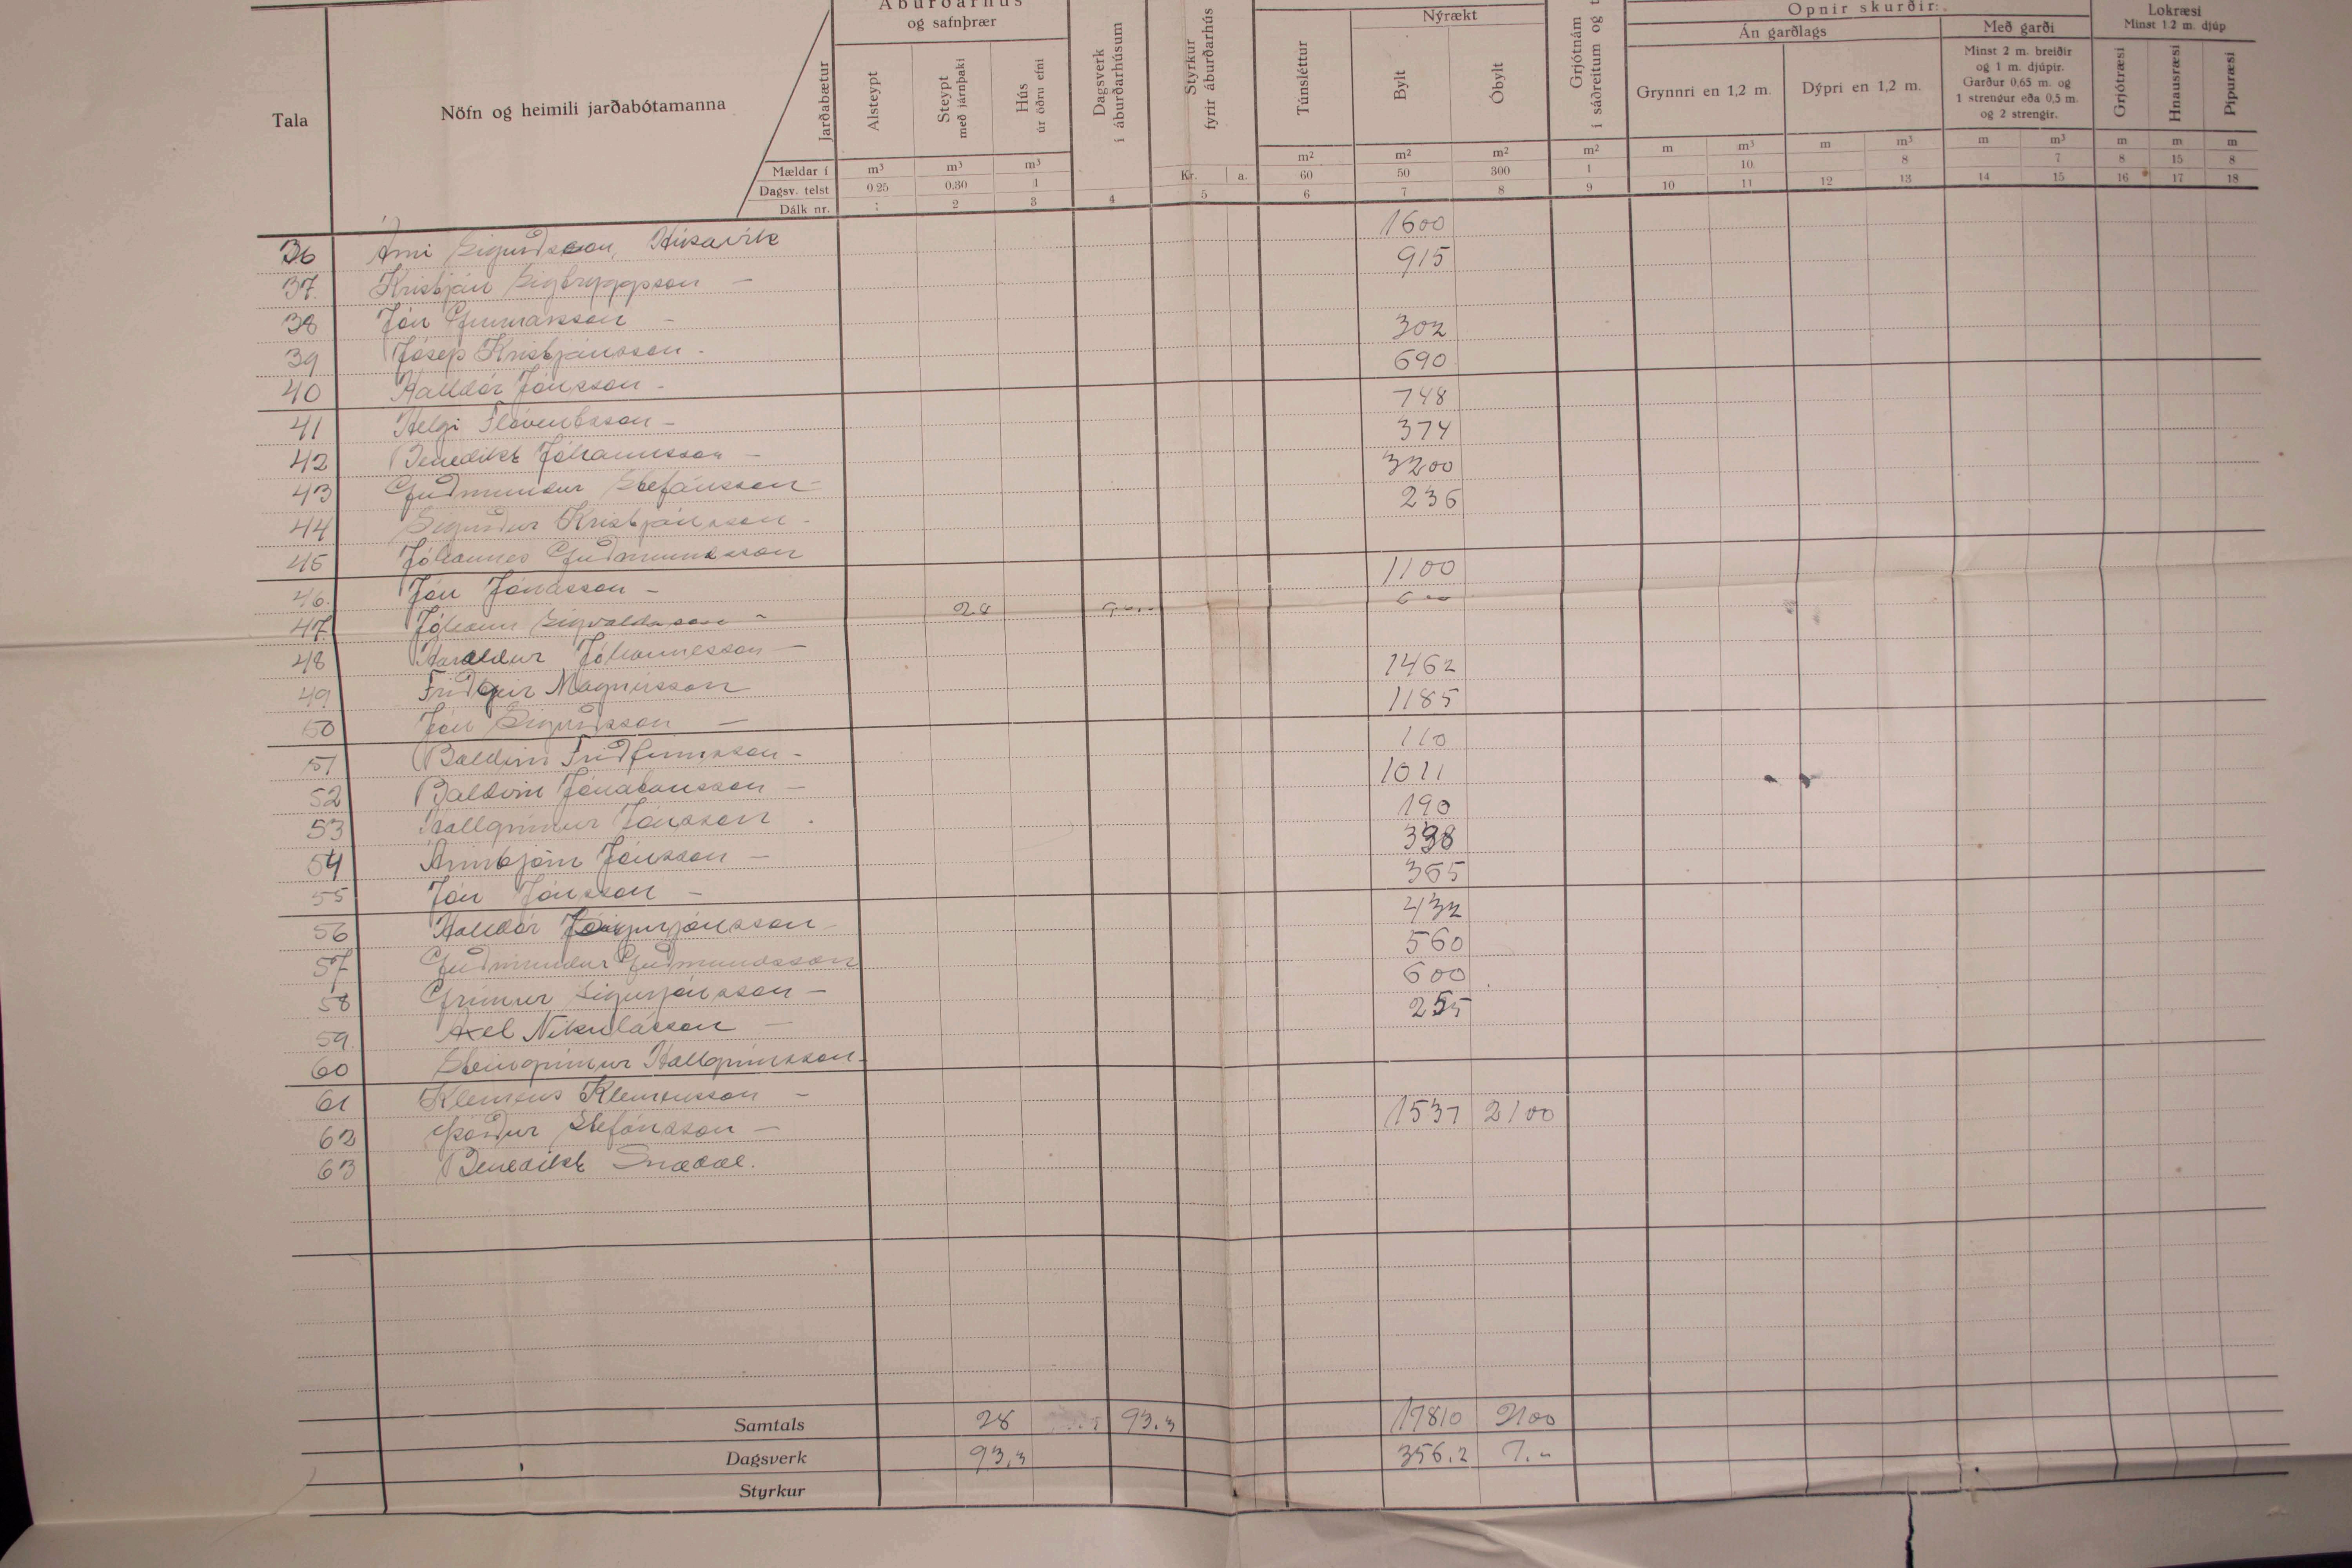 Áburðarhús
og safnþrær
Nýrækt
Opnir skurðir:
Lokræsi
Minst 1.2 m. djúp
Án garðlags
Með garði
Tala
Nöfn og heimili jarðabótamanna
Jarðabætur
Alsteypt
Steypt
með járnþaki
Hús
úr öðru efni
Dagsverk
í áburðarhúsum
Styrkur
fyrir áburðarhús
Túnsléttur
Bylt
Óbylt
Grjótnám
í sáðreitum og t
Grynnri en 1,2 m.
Dýpri en 1,2 m.
Minst 2 m. breiðir
og 1 m. djúpir.
Garður 0,65 m. og
1 strengur eða 0,5 m.
og 2 strengir.
Grjótræsi
Hnausræsi
Pípuræsi
Mældar í m³ m³ m³ Kr. a. m² m² m² m² m m³ m m³ m m³ m m m
Dagsv. telst 0.25 0.30 1 60 50 300 1 10 8 7 8 15 8
Dálk nr. 1 2 3 4 5 6 7 8 9 10 11 12 13 14 15 16 17 18
36 Árni Sigurðsson, Húsavík 1600
37. Kristján Sigtryggsson — 915
38 Jón Gunnarsson —
39 Jósep Kristjánsson - 302
40 Halldór Jónsson - 690
41 Helgi Flóventsson - 748
42 Benedikt Jóhannsson - 374
43 Guðmundur Stefánsson - 3200
44 Sigurður Kristjánsson - 236
45 Jóhannes Guðmundsson
46. Jón Jónasson - 1100
47. Jóhann Sigvaldason - 28
48 Haraldur Jóhannesson —
49 Friðgeir Magnússon 1462
50 Jón Sigurðsson — 1185
51 Baldvin Friðfinnsson - 110
52 Baldvin Jónatansson — 1011
53 Hallgrímur Jónsson . 190
54 Arnbjörn Jónsson — 338
55 Jón Jónsson - 365
56 Halldór Sigurjónsson 432
57 Guðmundur Guðmundsson 560
58 Grímur Sigurjónsson — 600
59. Axel Nikulásson — 255
60 Steingrímur Hallgrímsson -
61 Klemens Klemensson -
62 Þórður Stefánsson — 1537 2100
63 Benedikt Snædal.
Samtals 28 93.3 17810 2100
Dagsverk 93,3 356.2 7.-
Styrkur